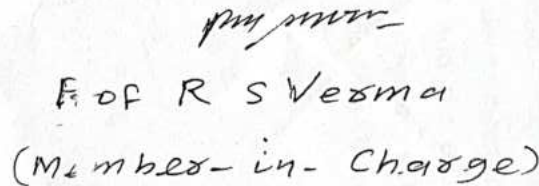 F. of R S Verma
(Member-in-Charge)